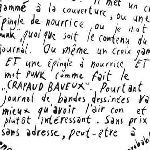 met un cr
gammé à la couverture, ou une
épingle de nourrice, ou je not
punk, quoi que soit le contenu du
journal. Ou même un croix gam
ET une épingle à nourrice ET
mit PUNK comme fait le
"CRAPAUD BAVEUX". Pourtant
journal de bandes dessinées va
mieux qu'avoit l'air con et
plutôt intéressant. Sans prix
sans adresse, peut-être à